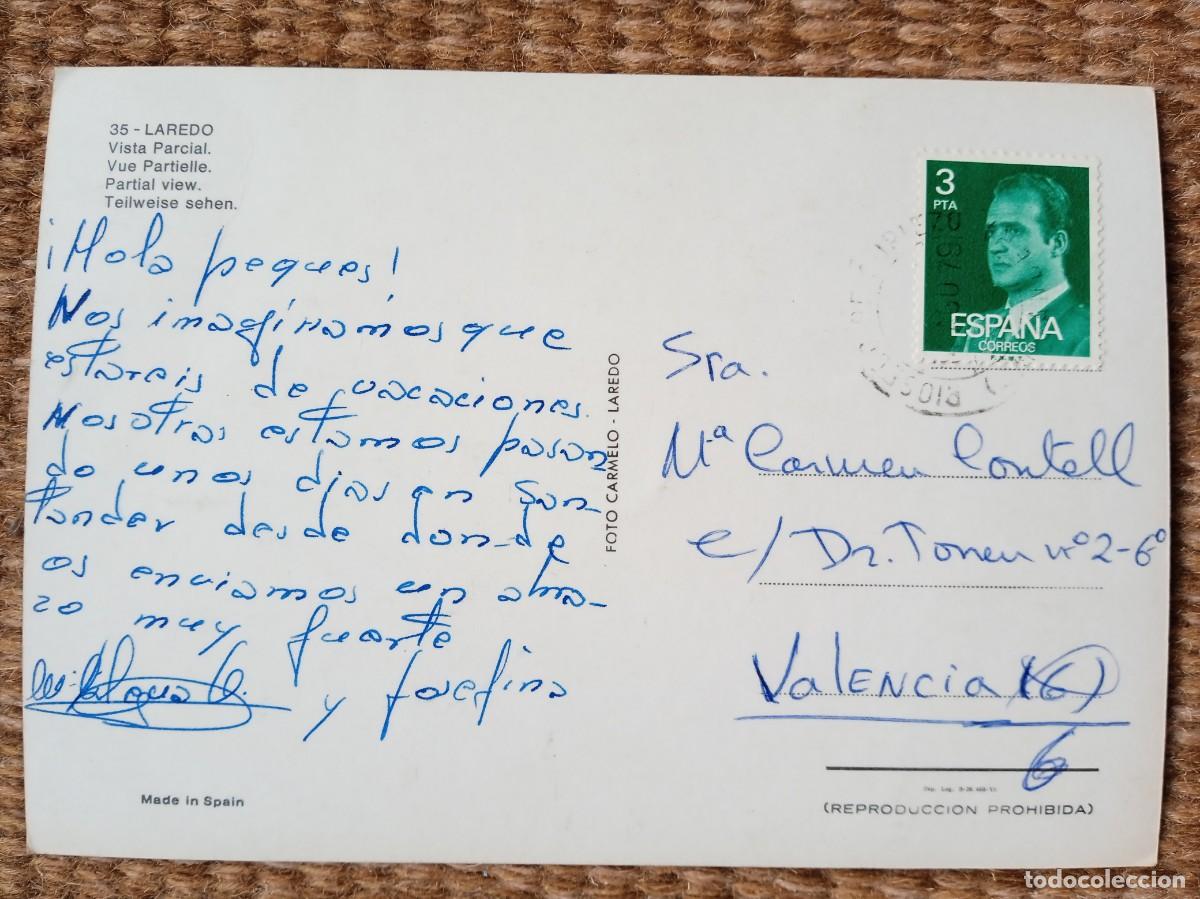 35 - LAREDO
Vista Parcial.
Vue Partielle.
Partial view.
Teilweise sehen.
¡Hola peques!
Nos imaginamos que
estareis de vacaciones.
Nosotras estamos pasan
do unos dias en San-
tander desde donde
os enviamos un abra-
zo muy fuerte
y Josefina
Made in Spain
FOTO CARMELO - LAREDO
3
PTA
ESPAÑA
CORREOS
F.N.M.T.
Sra.
Mª Carmen Contell
c/ Dr. nº 2-6º
Valencia (6)
6
(REPRODUCCION PROHIBIDA)
todocoleccion